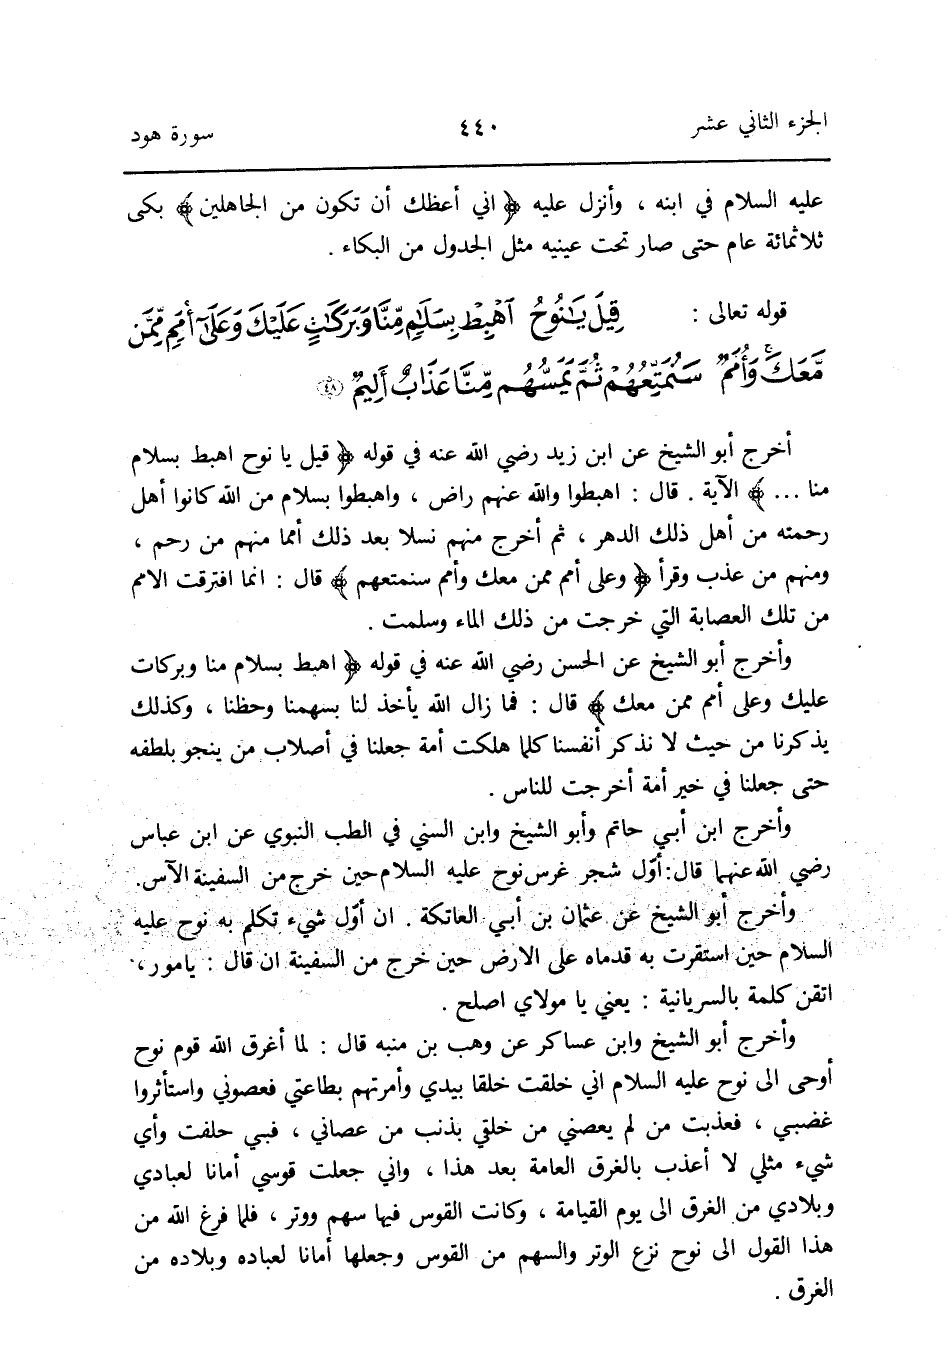 الجزء الثاني عشر ٤٤٠ سورة هود
عليه السلام في ابنه ، وأنزل عليه ﴿ اني أعظك أن تكون من الجاهلين ﴾ بكى
ثلاثمائة عام حتى صار تحت عينيه مثل الجدول من البكاء .
قوله تعالى : قِيلَ يَـٰنُوحُ ٱهۡبِطۡ بِسَلَـٰمٖ مِّنَّا وَبَرَكَـٰتٍ عَلَيۡكَ وَعَلَىٰٓ أُمَمٖ مِّمَّن
مَّعَكَۚ وَأُمَمٞ سَنُمَتِّعُهُمۡ ثُمَّ يَمَسُّهُم مِّنَّا عَذَابٌ أَلِيمٞ ﴿٤٨﴾
أخرج أبو الشيخ عن ابن زيد رضي الله عنه في قوله ﴿ قيل يا نوح اهبط بسلام
منا ... ﴾ الآية . قال : اهبطوا والله عنهم راض ، واهبطوا بسلام من الله كانوا أهل
رحمته من أهل ذلك الدهر ، ثم أخرج منهم نسلا بعد ذلك أمما منهم من رحم ،
ومنهم من عذب وقرأ ﴿ وعلى أمم ممن معك وأمم سنمتعهم ﴾ قال : انما افترقت الامم
من تلك العصابة التي خرجت من ذلك الماء وسلمت .
وأخرج أبو الشيخ عن الحسن رضي الله عنه في قوله ﴿ اهبط بسلام منا وبركات
عليك وعلى أمم ممن معك ﴾ قال : فما زال الله يأخذ لنا بسهمنا وحظنا ، وكذلك
يذكرنا من حيث لا نذكر أنفسنا كلما هلكت أمة جعلنا في أصلاب من ينجو بلطفه
حتى جعلنا في خير أمة أخرجت للناس .
وأخرج ابن أبي حاتم وأبو الشيخ وابن السني في الطب النبوي عن ابن عباس
رضي الله عنهما قال : أوّل شجر غرس نوح عليه السلام حين خرج من السفينة الآس .
وأخرج أبو الشيخ عن عثمان بن أبي العاتكة . ان أوّل شيء تكلم به نوح عليه
السلام حين استقرت به قدماه على الارض حين خرج من السفينة ان قال : يامور ،
اتقن كلمة بالسريانية : يعني يا مولاي اصلح .
وأخرج أبو الشيخ وابن عساكر عن وهب بن منبه قال : لما أغرق الله قوم نوح
أوحى الى نوح عليه السلام اني خلقت خلقا بيدي وأمرتهم بطاعتي فعصوني واستأثروا
غضبي ، فعذبت من لم يعصني من خلقي بذنب من عصاني ، فبي حلفت وأي
شيء مثلي لا أعذب بالغرق العامة بعد هذا ، واني جعلت قوسي أمانا لعبادي
وبلادي من الغرق الى يوم القيامة ، وكانت القوس فيها سهم ووتر ، فلما فرغ الله من
هذا القول الى نوح نزع الوتر والسهم من القوس وجعلها أمانا لعباده وبلاده من
الغرق .